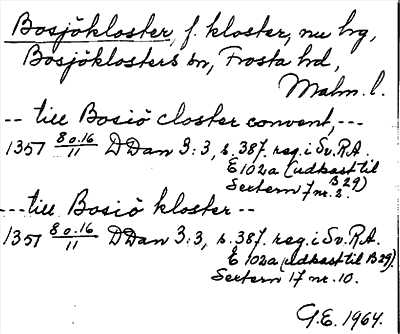 Bosjökloster, f. kloster, nu hrg,
Bosjöklosters sn, Frosta hd,
Malm. l.
-- till Bosiö closter convent, ---
1357 8 o. 16/11 DDan 3:3, s. 387. reg. i Sv. R.A.
E 102a (udkast til B 29)
Sectern 7 nr. 2.
--- till Bosiö kloster --
1357 8 o. 16/11 DDan 3:3, s. 387. reg. i Sv. R.A.
E 102a (udkast til B 29).
Sectern 17 nr. 10.
G.E. 1964.